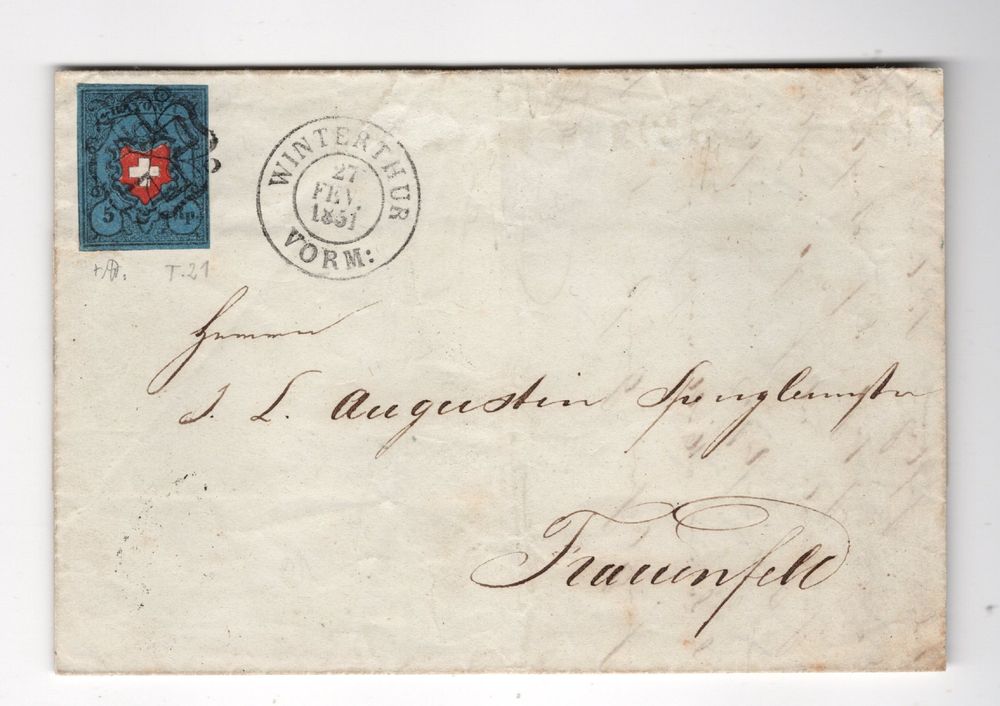 RAYON
5 Rp.
WINTERTHUR
27
FEV.
1851
VORM:
T. 21
Herrn
J. L. Augustin Spenglermstr
Frauenfeld